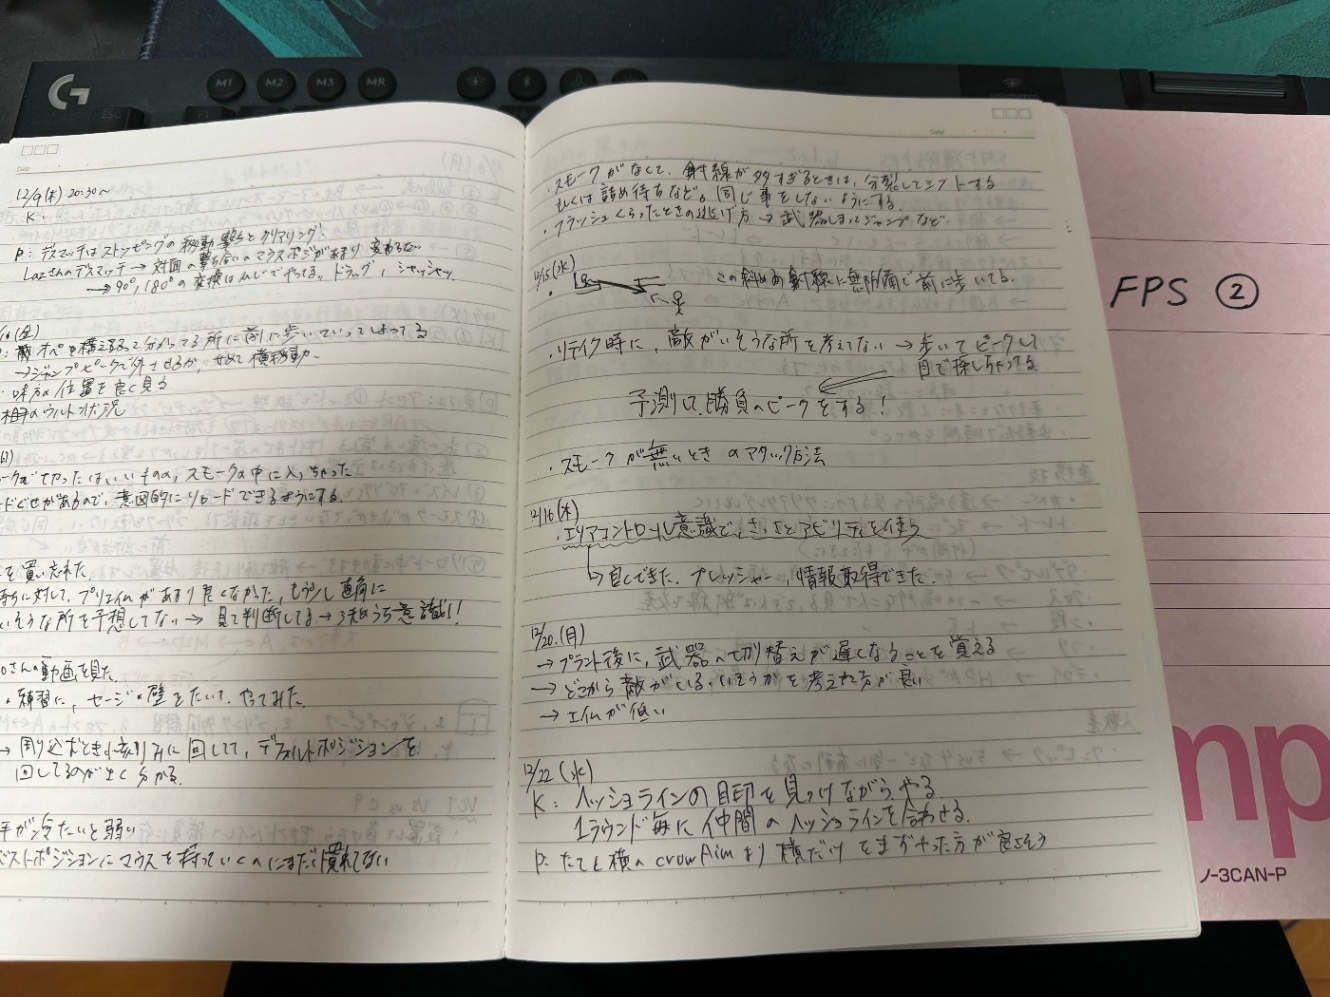 G
M1 M2 M3 MR
ESC
Date
12/9(木) 20:30〜
K:
P: デスマッチはストッピングの移動撃ちとクリアリング.
Lazさんのデスマッチ→対面の撃ち合いのマウスポジがあまり変わらない
→90°,180°の変換は
でやってる。ドラッグ,
(金)
オペが構え
て分かってる所に前に歩いていってしまってる
→ジャンプピークで外させるか、せめて横移動.
味方の位置を良く見る
相手のウルト状況
切ったはいいものの、スモークの中に入っちゃった
ードぐせがあるので、意図的にリロードできるようにする.
を買い忘れた.
待ちに対して、プリエイムがあまり良くなかった,もう少し直角に
いそうな所を予想してない → 見て判断してる →
意識!!
さんの動画を見た.
練習に,セージの壁をたいて,やってみた.
→ 周り込むとき小刻みに回してて,デフォルトポジションを
回してるのがよく分かる.
手が冷たいと弱い
ベストポジションにマウスを持っていくのにまだ慣れてない
Date
・スモークがなくて、射線が多すぎるときは、分裂してシフトする
もしくは詰め待ちなど。同じ事をしないようにする.
・フラッシュくらったときの逃げ方→武器しまってジャンプなど.
12/15(水)
この斜め両射線に無防備で前に歩いてる.
・リテイク時に、敵がいそうな所を考えてない → 歩いてピークして
目で探しちゃってる
予測して、勝負のピークをする!
・スモークが無いときのアタック方法
12/16(木)
・エリアコントロール意識で、さっさとアビリティを使う
↳良くできた. プレッシャー,情報取得できた.
12/20.(月)
→プラント後に,武器の切り替えが遅くなることを覚える
→どこから敵がいる・いそうかを考えた方が良い
→エイムが低い
12/22(水)
K: ヘッショラインの目印を見つけながらやる
1ラウンド毎に仲間のヘッショラインを合わせる.
P: たてと横の crow Aim より横だけをまずやった方が良さそう
FPS ②
mp
ノ-3CAN-P